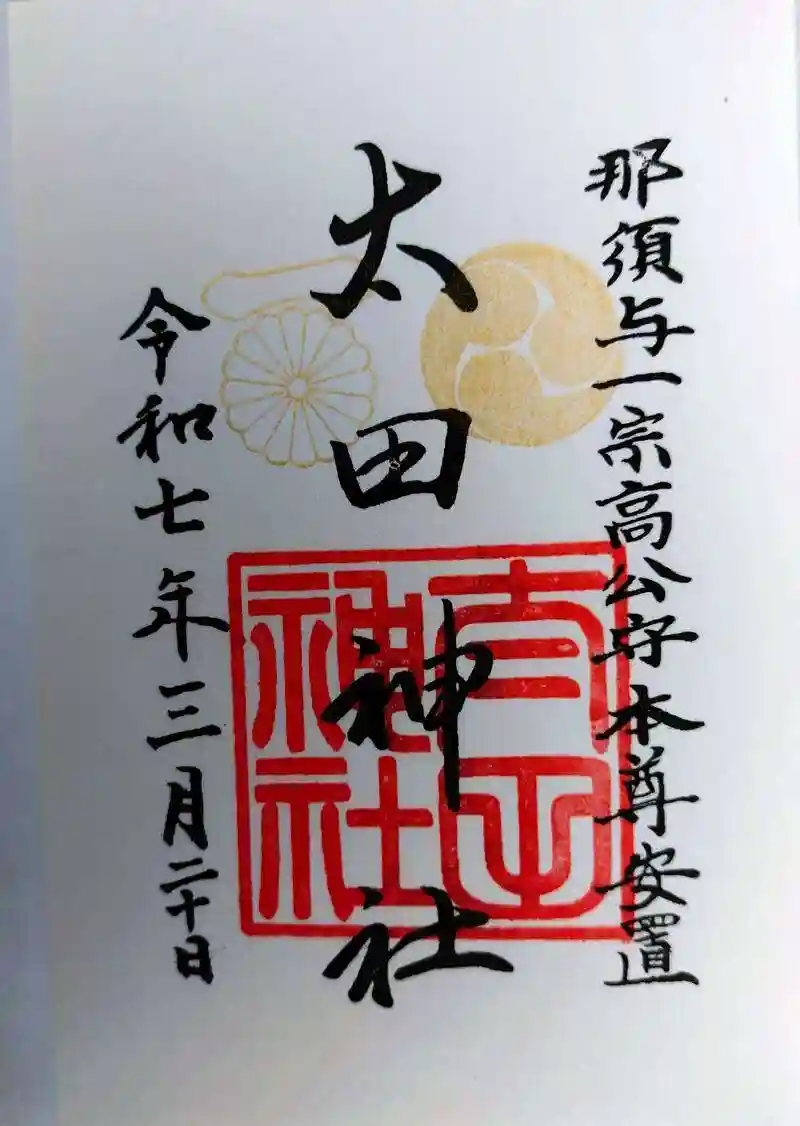 那須与一宗高公守本尊安置
太田神社
令和七年三月二十日
神社